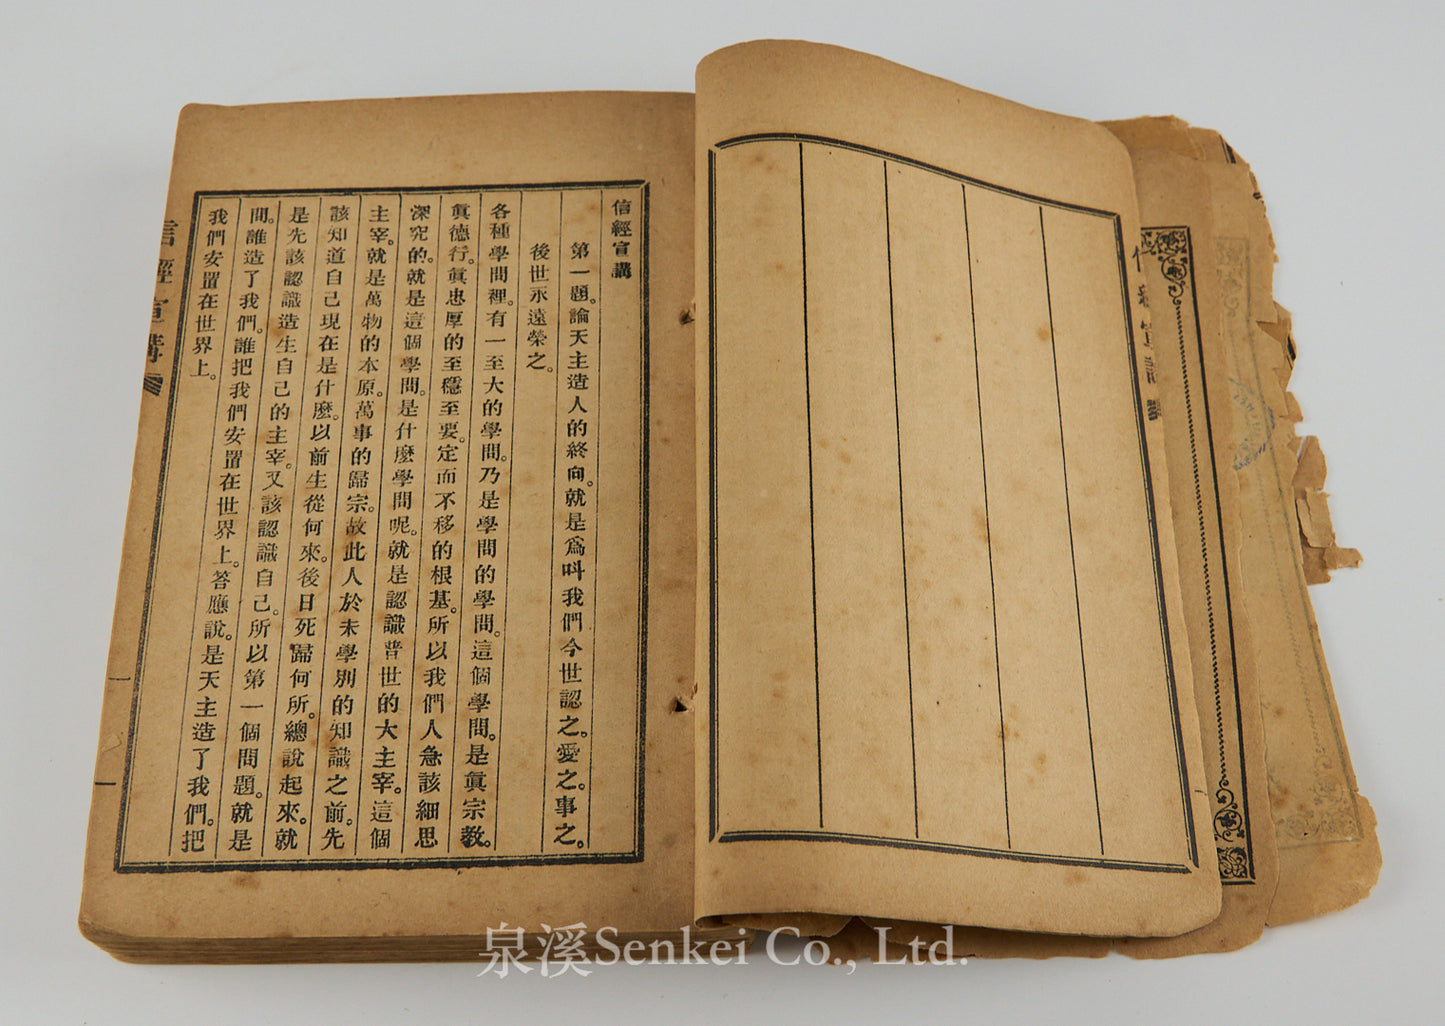 信經宣講
第一題。論天主造人的終向。就是爲叫我們今世認之。愛之。事之。
後世永遠榮之。
各種學問裡。有一至大的學問。乃是學問的學問。這個學問。是眞宗教。
眞德行。眞忠厚的至穩至要。定而不移的根基。所以我們人急該細思
深究的。就是這個學問。是什麼學問呢。就是認識普世的大主宰。這個
主宰。就是萬物的本原。萬事的歸宗。故此人於未學別的知識之前。先
該知道自己現在是什麼。以前生從何來。後日死歸何所。總說起來。就
是先該認識造生自己的主宰。又該認識自己。所以第一個問題。就是
問。誰造了我們。誰把我們安置在世界上。答應說。是天主造了我們。把
我們安置在世界上。
信經宣講
泉溪Senkei Co., Ltd.